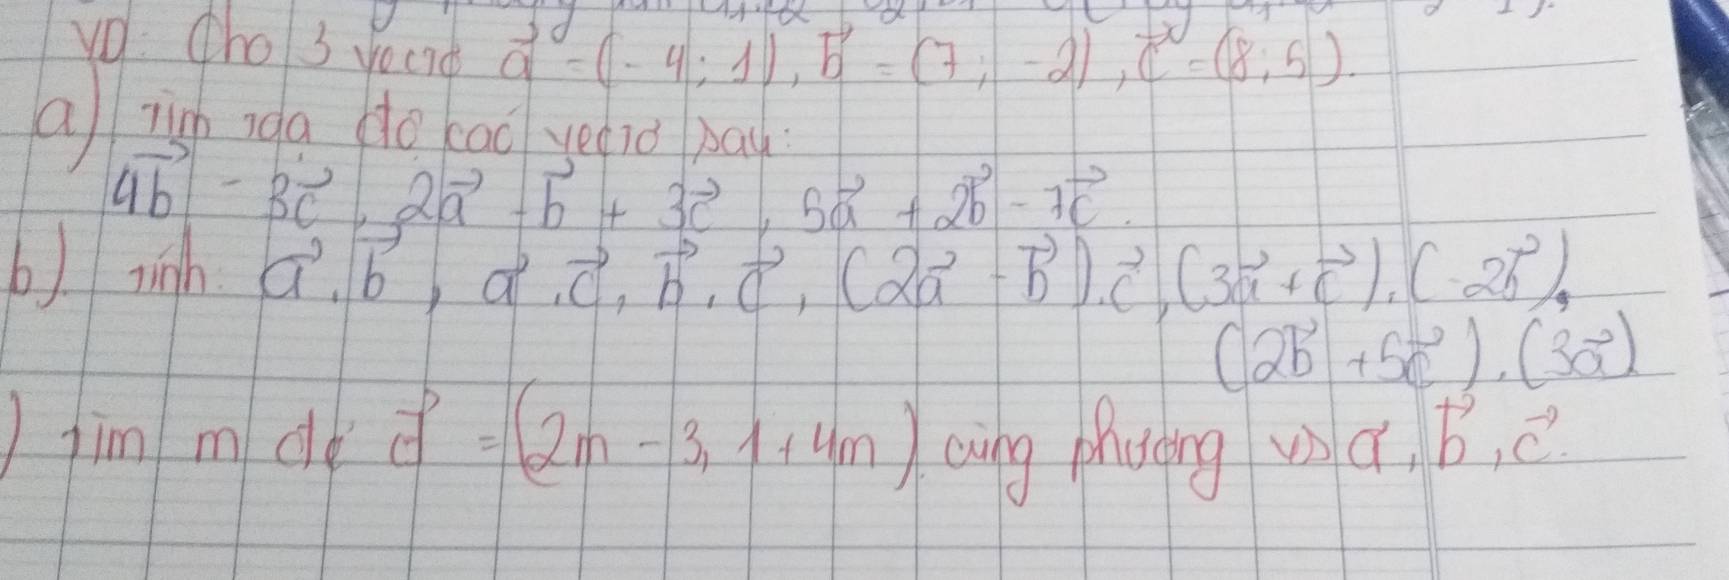 VD: Cho 3 vectơ a⃗ = (-4; 1), b⃗ = (7; -2), c⃗ = (8; 5).
a) Tìm tọa độ các vectơ sau:
4b⃗ - 3c⃗, 2a⃗ - b⃗ + 3c⃗, 5a⃗ + 2b⃗ - 7c⃗.
b). Tính: a⃗.b⃗, a⃗.c⃗, b⃗.c⃗, (2a⃗ - b⃗).c⃗, (3a⃗ + c⃗).(-2b⃗),
(2b⃗ + 5c⃗).(3a⃗)
) Tìm m để d⃗ = (2m - 3, 1 + 4m) cùng phương vs a⃗, b⃗, c⃗.